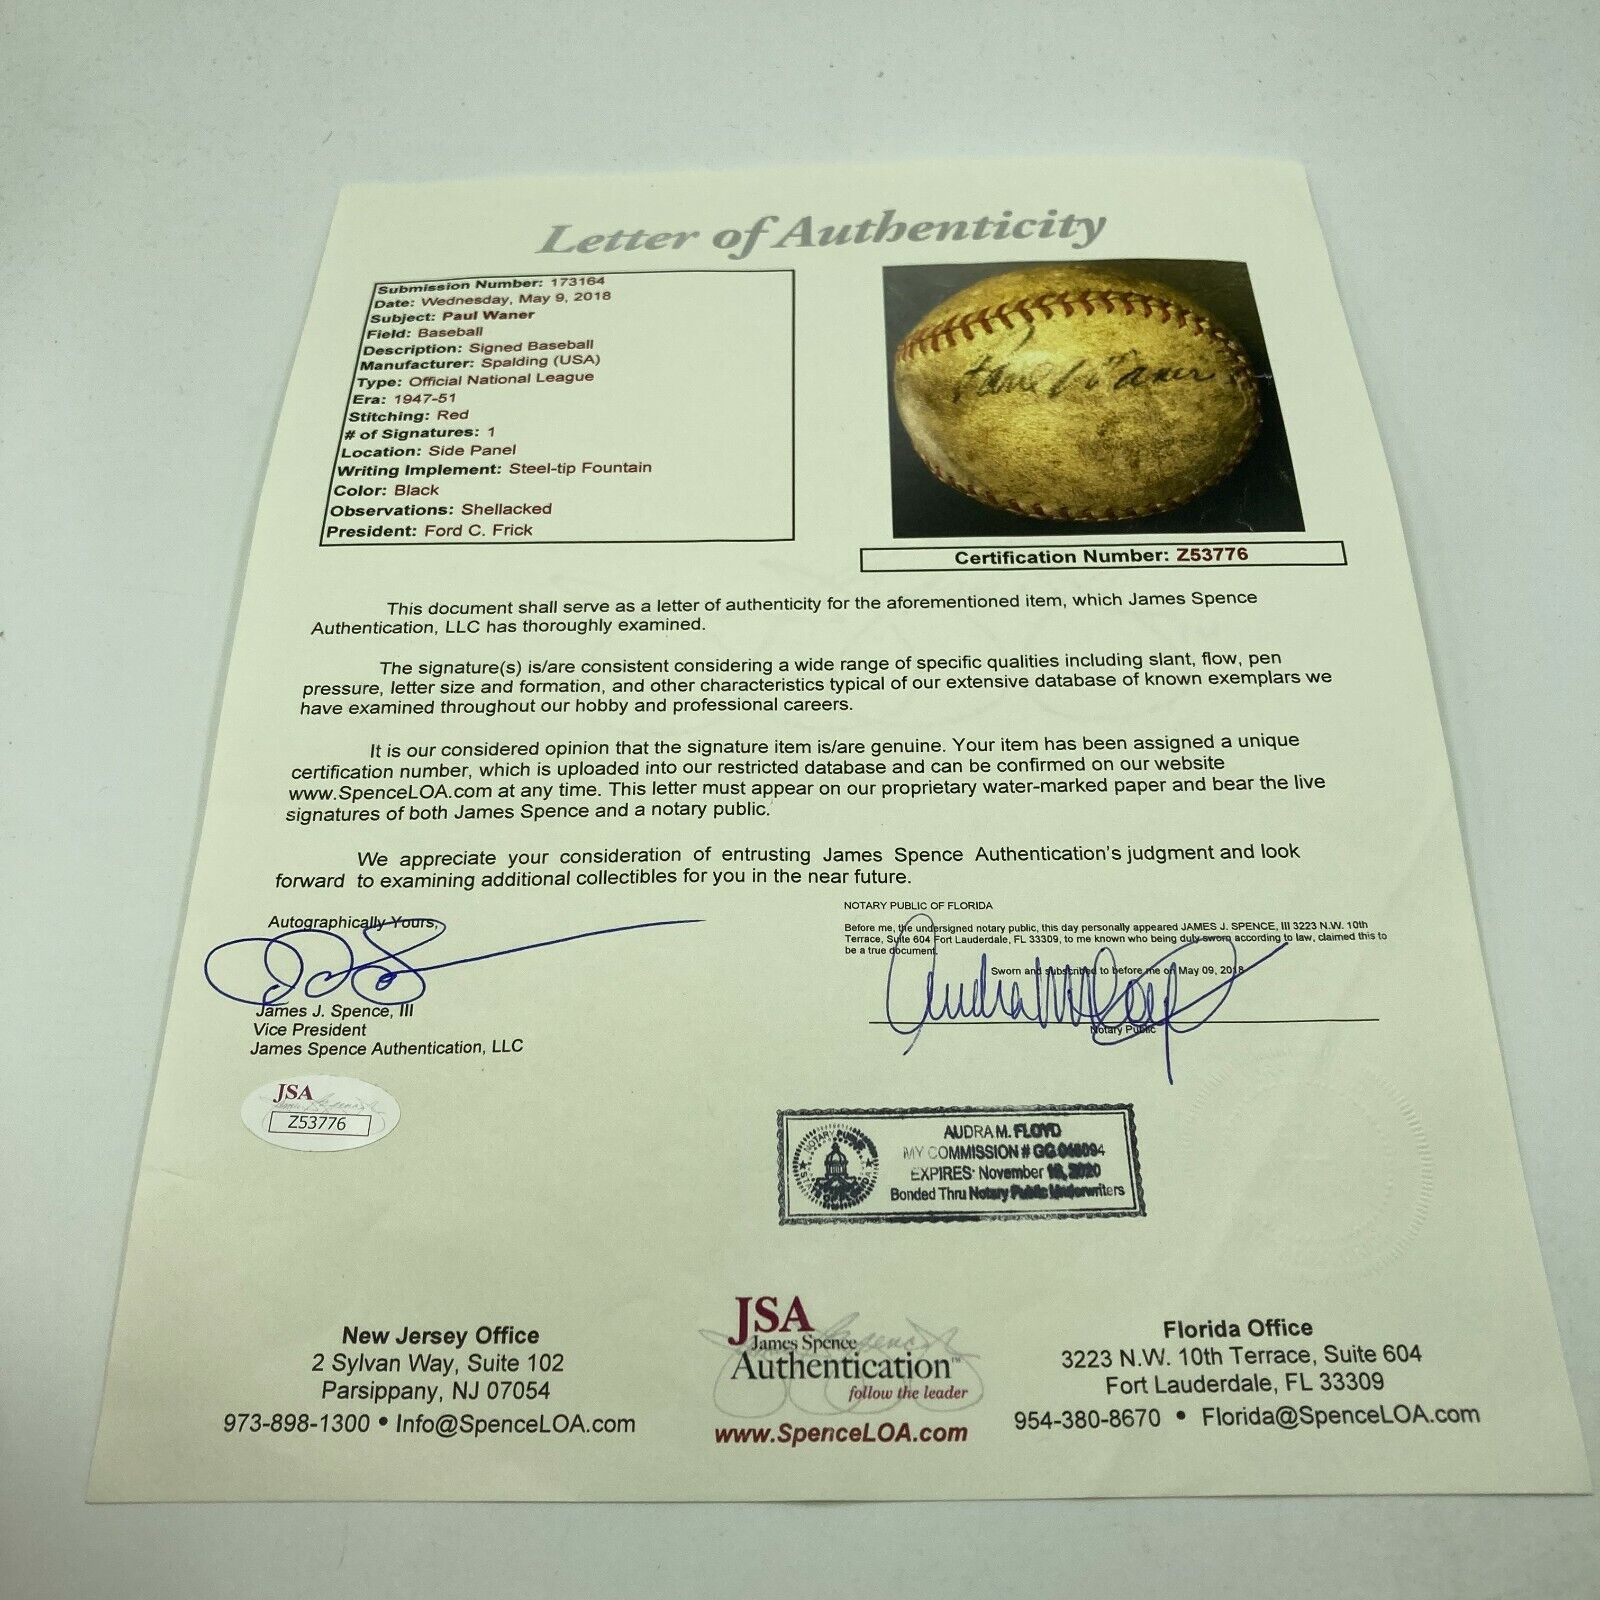 Letter of Authenticity
Submission Number: 173164
Date: Wednesday, May 9, 2018
Subject: Paul Waner
Field: Baseball
Description: Signed Baseball
Manufacturer: Spalding (USA)
Type: Official National League
Era: 1947-51
Stitching: Red
# of Signatures: 1
Location: Side Panel
Writing Implement: Steel-tip Fountain
Color: Black
Observations: Shellacked
President: Ford C. Frick
Paul Waner
Certification Number: Z53776
This document shall serve as a letter of authenticity for the aforementioned item, which James Spence
Authentication, LLC has thoroughly examined.
The signature(s) is/are consistent considering a wide range of specific qualities including slant, flow, pen
pressure, letter size and formation, and other characteristics typical of our extensive database of known exemplars we
have examined throughout our hobby and professional careers.
It is our considered opinion that the signature item is/are genuine. Your item has been assigned a unique
certification number, which is uploaded into our restricted database and can be confirmed on our website
www.SpenceLOA.com at any time. This letter must appear on our proprietary water-marked paper and bear the live
signatures of both James Spence and a notary public.
We appreciate your consideration of entrusting James Spence Authentication's judgment and look
forward to examining additional collectibles for you in the near future.
Autographically Yours,
James J. Spence, III
Vice President
James Spence Authentication, LLC
NOTARY PUBLIC OF FLORIDA
Before me, the undersigned notary public, this day personally appeared JAMES J. SPENCE, III 3223 N.W. 10th
Terrace, Suite 604 Fort Lauderdale, FL 33309, to me known who being duly sworn according to law, claimed this to
be a true document.
Sworn and subscribed to before me on May 09, 2018
Notary Public
JSA
Z53776
AUDRA M. FLOYD
MY COMMISSION # GG
EXPIRES: November 2020
Bonded Thru Notary Public Underwriters
New Jersey Office
2 Sylvan Way, Suite 102
Parsippany, NJ 07054
973-898-1300 • Info@SpenceLOA.com
JSA
James Spence
Authentication™
follow the leader
www.SpenceLOA.com
Florida Office
3223 N.W. 10th Terrace, Suite 604
Fort Lauderdale, FL 33309
954-380-8670 • Florida@SpenceLOA.com